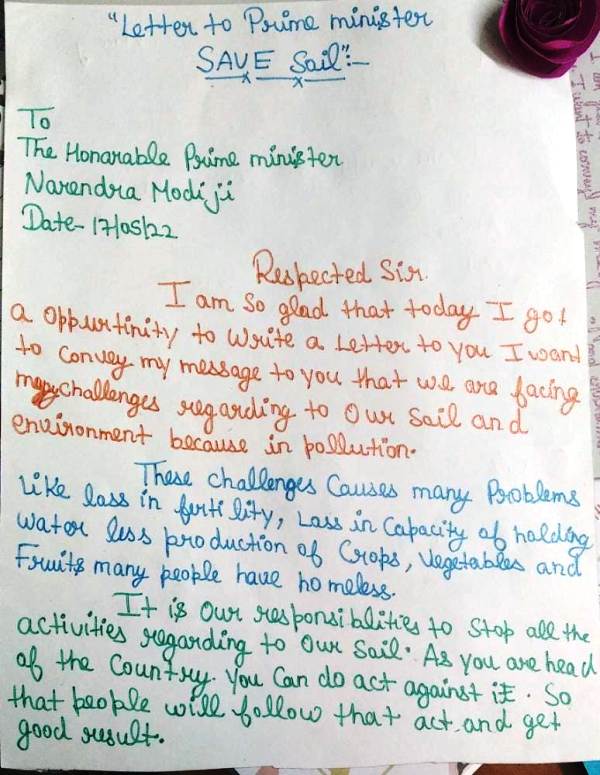 "Letter to Prime minister
SAVE Soil":-
To
The Honarable Prime minister
Narendra Modi ji
Date- 17/05/22
Respected Sir.
I am so glad that today I got
a oppurtinity to write a Letter to you I want
to convey my message to you that we are facing
many challenges regarding to our soil and
environment because in pollution.
These challenges causes many Problems
Like loss in fertility, Loss in Capacity of holding
water less production of Crops, Vegetables and
Fruits many people have homeless.
It is our responsiblities to stop all the
activities regarding to our soil. As you are head
of the Country. You Can do act against it. So
that people will follow that act. and get
good result.